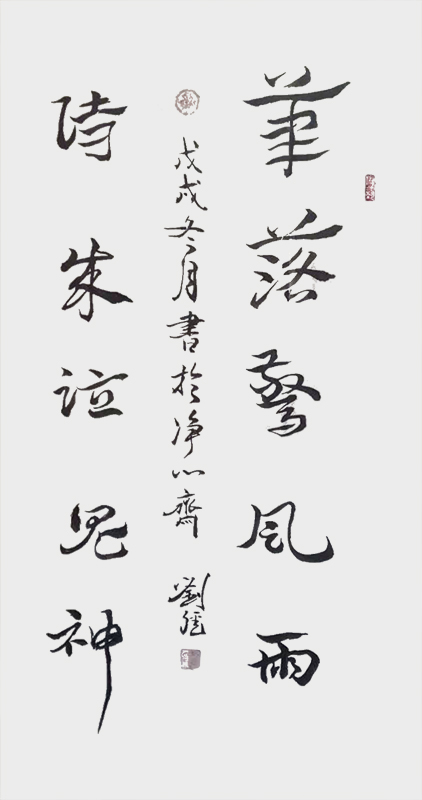 筆落驚風雨
詩成泣鬼神
戊戌冬月書於净心齋 劉